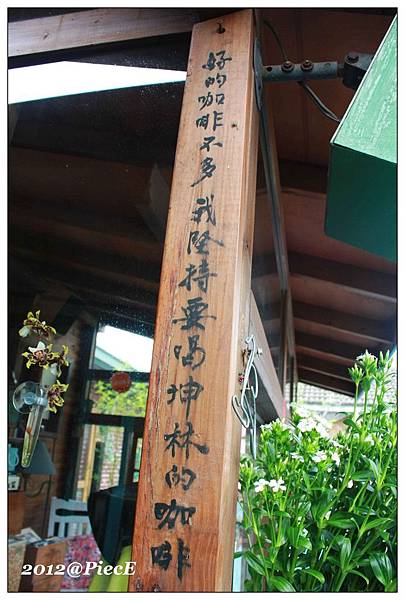 好的咖啡不多 我堅持要喝坤林的咖啡
2012@PiecE